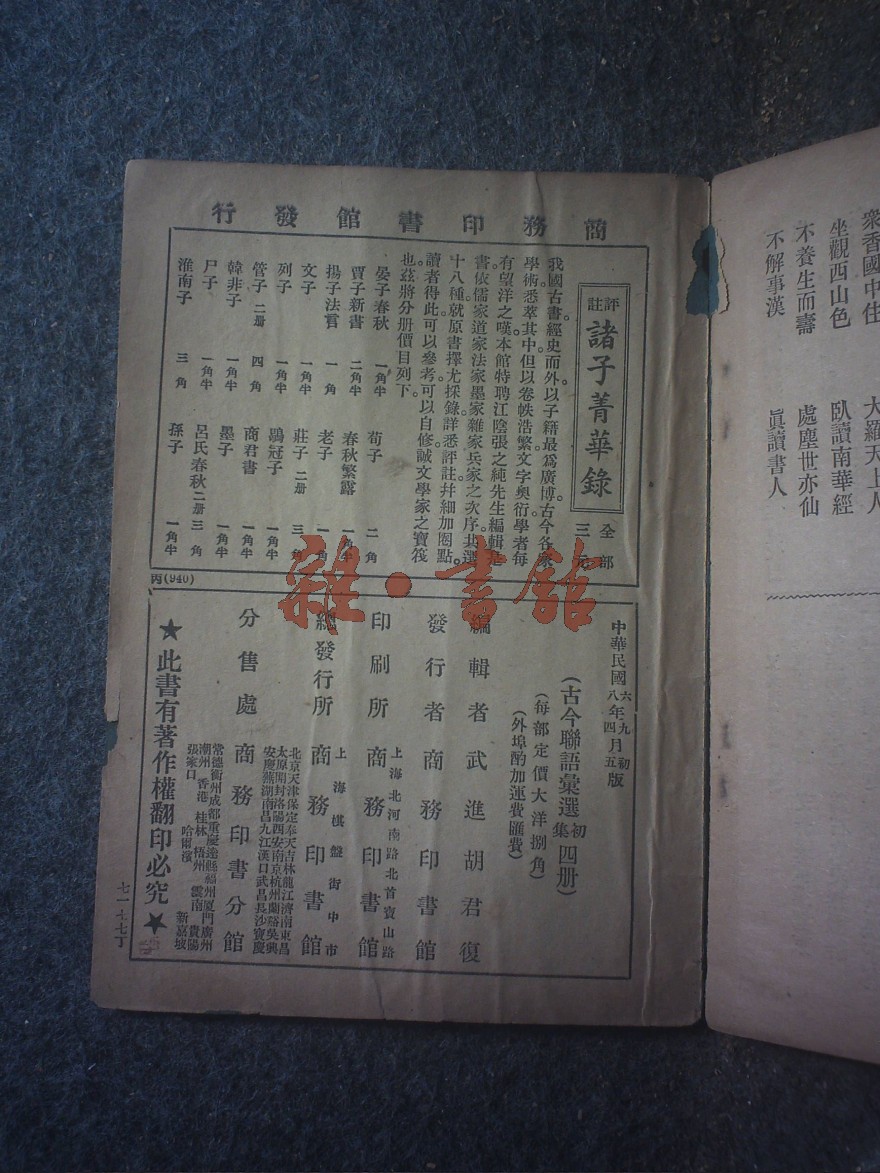 衆香國中住　大羅天上人
坐觀西山色　臥讀南華經
不養生而壽　處塵世亦仙
不解事漢　眞讀書人
商務印書館發行
評註
諸子菁華錄
全部
三元
我國古書經史而外以子籍最爲廣博。古今各家
學術悉萃其中但以卷帙浩繁文字奧衍學者每
有望洋之嘆本館特聘江陰張之純先生編輯是
書依儒家道家法家墨家雜家兵家之次序共選
十八種就原書擇尤採錄詳悉評註幷細加圈點。
讀者得此可以參考可以自修誠文學家之寶筏
也茲將分册價目列下。
晏子春秋　一角半　荀子　二角
賈子新書　二角半　春秋繁露　一角半
揚子法言　一角　老子　一角
文子　一角半　莊子　二册　三角
列子　一角半　鶡冠子　一角半
管子　二册　四角　商君書　一角半
韓非子　一角半　墨子　一角半
尸子　一角半　呂氏春秋　二册　三角
淮南子　三角　孫子　一角半
丙(940)
雜·書館
中華民國六年九月初版
八年四月五版
(古今聯語彙選初集四册)
(每部定價大洋捌角)
(外埠酌加運費匯費)
編輯者　武進胡君復
發行者　商務印書館
上海北河南路北首寶山路
印刷所　商務印書館
上海棋盤街中市
總發行所　商務印書館
北京天津保定奉天吉林龍江濟南東昌
太原開封洛陽西安南京杭州蘭谿吳興
安慶蕪湖南昌九江漢口武昌長沙寶慶
分售處　商務印書分館
常德衡州成都重慶瀘縣福州厦門廣州
潮州香港桂林梧州雲南貴陽
張家口　哈爾濱　新嘉坡
★此書有著作權翻印必究★
七一七七丁